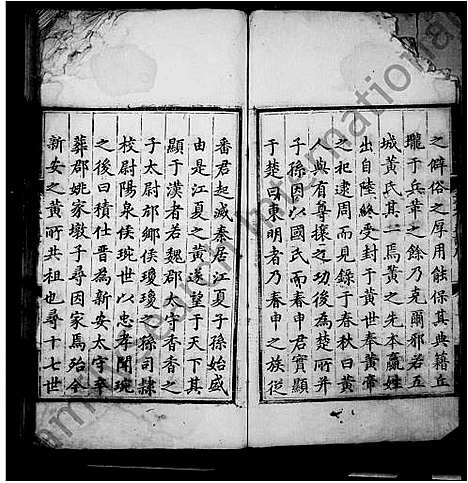 之僻俗之厚用能保其典籍丘
壠于兵革之餘乃克爾邪若五
城黃氏其一焉黃之先本嬴姓
出自陸終受封于黃世奉黃帝
之祀逮周而見錄于春秋曰黃
人與有尊攘之功後為楚所并
子孫因以國氏而春申君實顯
于楚曰東明者乃春申之族從
番君起滅秦居江夏子孫始盛
由是江夏之黃遂望于天下其
顯于漢者若魏郡太守香香之
子太尉邟鄉侯瓊瓊之孫司隸
校尉陽泉侯琬世以忠孝聞琬
之後曰積仕晉為新安太守卒
葬郡姚家墩子尋因家焉殆今
新安之黃所共祖也尋十七世